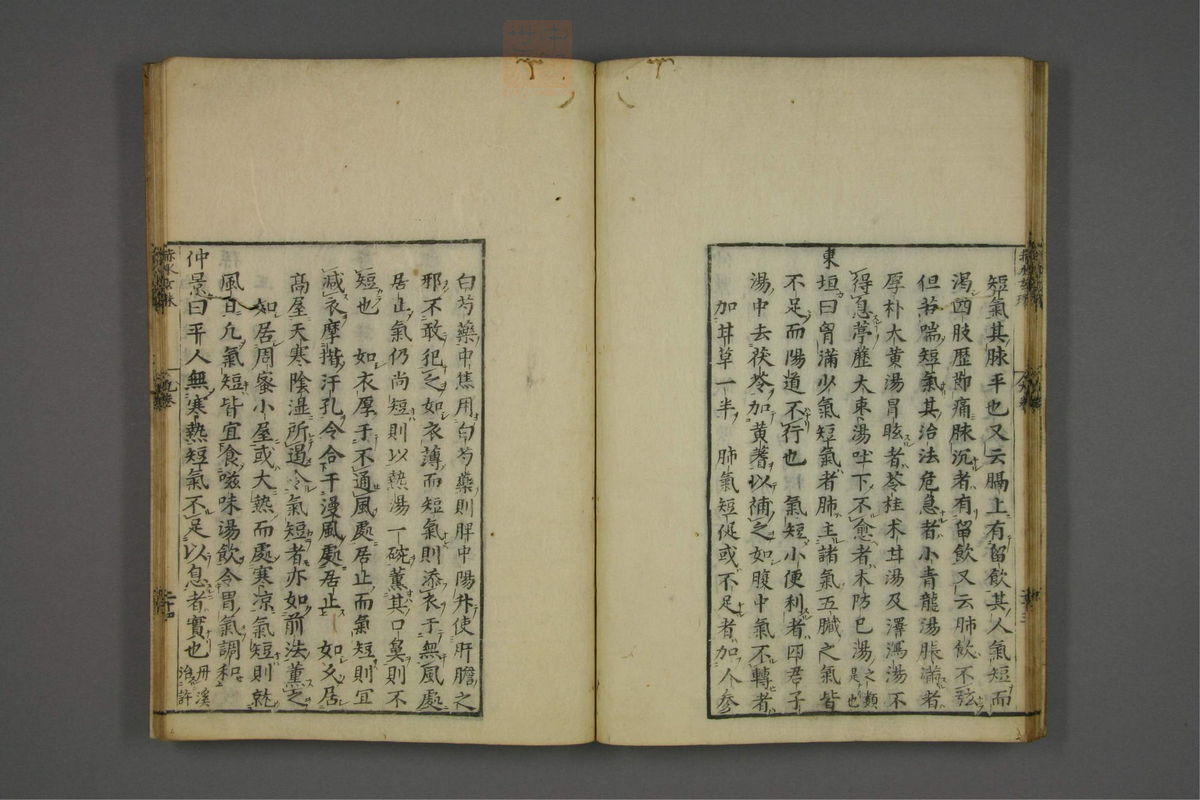 短氣其脉平也又云膈上有留飲其人氣短而
渴四肢歷節痛脉沉者有留飲又云肺飲不弦
但苦喘短氣其治法危急者小青龍湯脹滿者
厚朴大黃湯冒眩者苓桂术甘湯及澤瀉湯不
得息葶藶大棗湯吐下不愈者木防巳湯之類是也
東垣曰胷滿少氣短氣者肺主諸氣五臟之氣皆
不足而陽道不行也 氣短小便利者四君子
湯中去茯苓加黃蓍以補之如腹中氣不轉者
加甘草一半 肺氣短促或不足者加人參
白芍藥中焦用白芍藥則脾中陽升使肝膽之
邪不敢犯之如衣薄而短氣則添衣于無風處
居止氣仍尚短則以熱湯一碗薰其口鼻則不
短也 如衣厚于不通風處居止而氣短則宜
减衣摩揩汗孔令合于漫風處居止 如久居
高屋天寒陰湿所遏令氣短者亦如前法薰之
如居周蜜小屋或大熱而處寒凉氣短則就
風且凢氣短皆宜食滋味湯飲令胃氣調和
仲景曰平人無寒熱短氣不足以息者實也丹溪治許
九卷
二十四